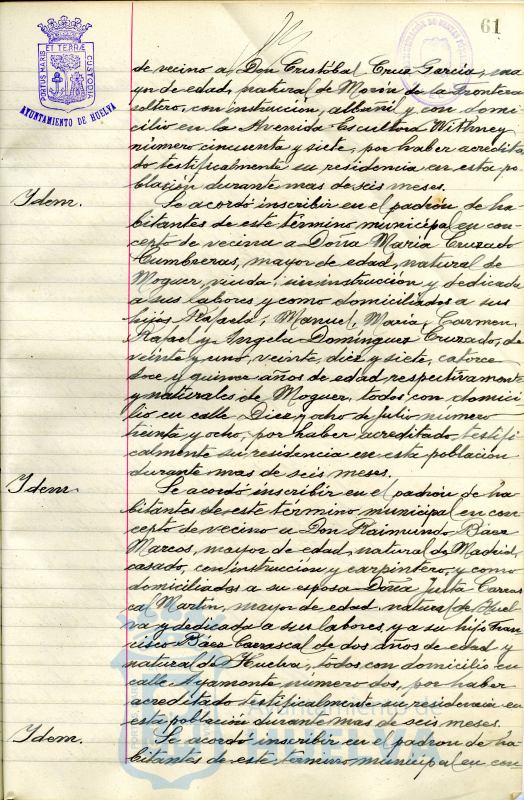 61
PORTUS MARIS ET TERRÆ CUSTODIA
AYUNTAMIENTO DE HUELVA
de vecino a Don Cristóbal Cruz Garcia, ma
yor de edad, natural de Morón de la Frontera
soltero, con instrucción, albañil y con domi
cilio en la Avenida Escultora Withney
número cincuenta y siete, por haber acredita
do testificalmente su residencia en esta po
blación durante mas de seis meses.
Idem.
Se acordó inscribir en el padrón de ha
bitantes de este término municipal en con
cepto de vecina a Doña Maria Cruzado
Cumbreras, mayor de edad, natural de
Moguer, viuda, sin instrucción y dedicada
a sus labores y como domiciliados a sus
hijos Rafaela, Manuel, Maria, Carmen,
Rafael y Angela Domínguez Cruzado, de
veinte y uno, veinte, diez y siete, catorce
doce y quince años de edad, respectivamente
y naturales de Moguer, todos con domici
lio en calle Diez y ocho de Julio número
treinta y ocho, por haber acreditado testifi
calmente su residencia en esta población
durante mas de seis meses.
Idem.
Se acordó inscribir en el padrón de ha
bitantes de este termino municipal en con
cepto de vecino a Don Raimundo Báez
Marcos, mayor de edad, natural de Madrid,
casado, con instruccion y carpintero, y como
domiciliados a su esposa Doña Julia Carras
cal Martin, mayor de edad, natural de Huel
va y dedicada a sus labores, y a su hijo Fran
cisco Báez Carrascal de dos años de edad y
natural de Huelva, todos con domicilio en
calle Ayamonte, número dos, por haber
acreditado testificalmente su residencia en
esta población durante mas de seis meses.
Idem.
Se acordó inscribir en el padron de ha
bitantes de este término municipal en con
Ayuntamiento de
HUELVA